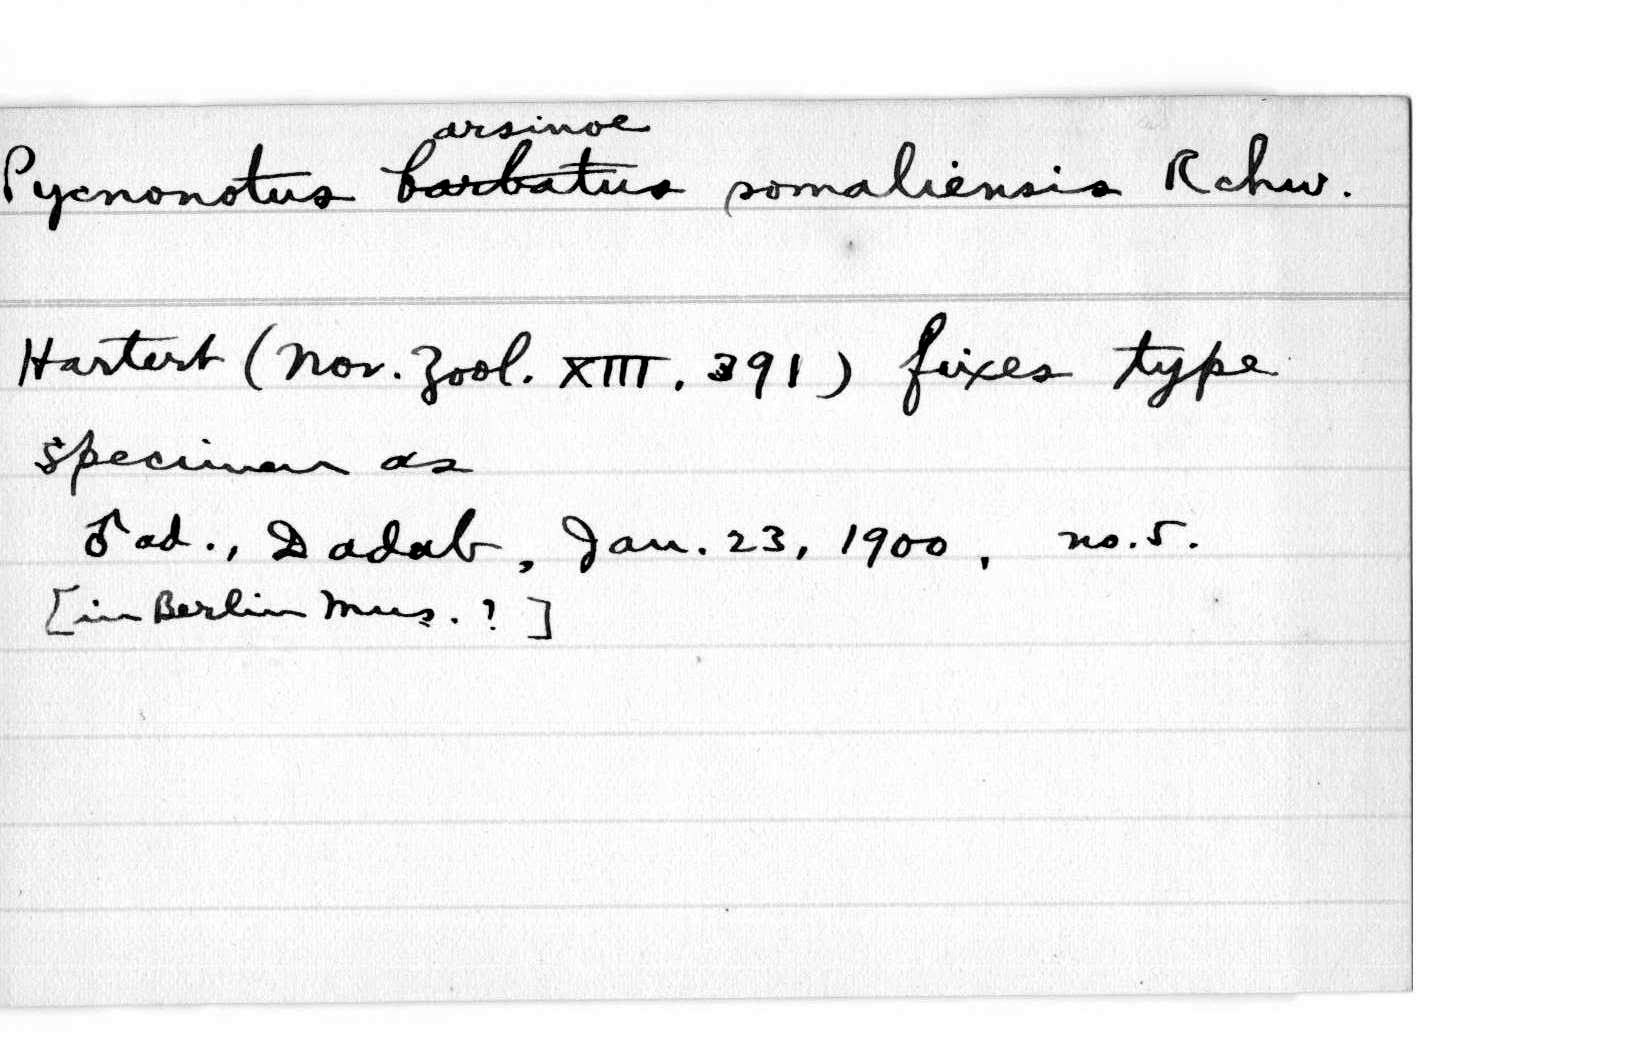 arsinoe
Pycnonotus barbatus somaliensis Rchw.
Hartert (Nov. Zool. XIII, 391) fixes type
specimen as
♂ ad., Dadab, Jan. 23, 1900, no. 5.
[in Berlin Mus. ?]